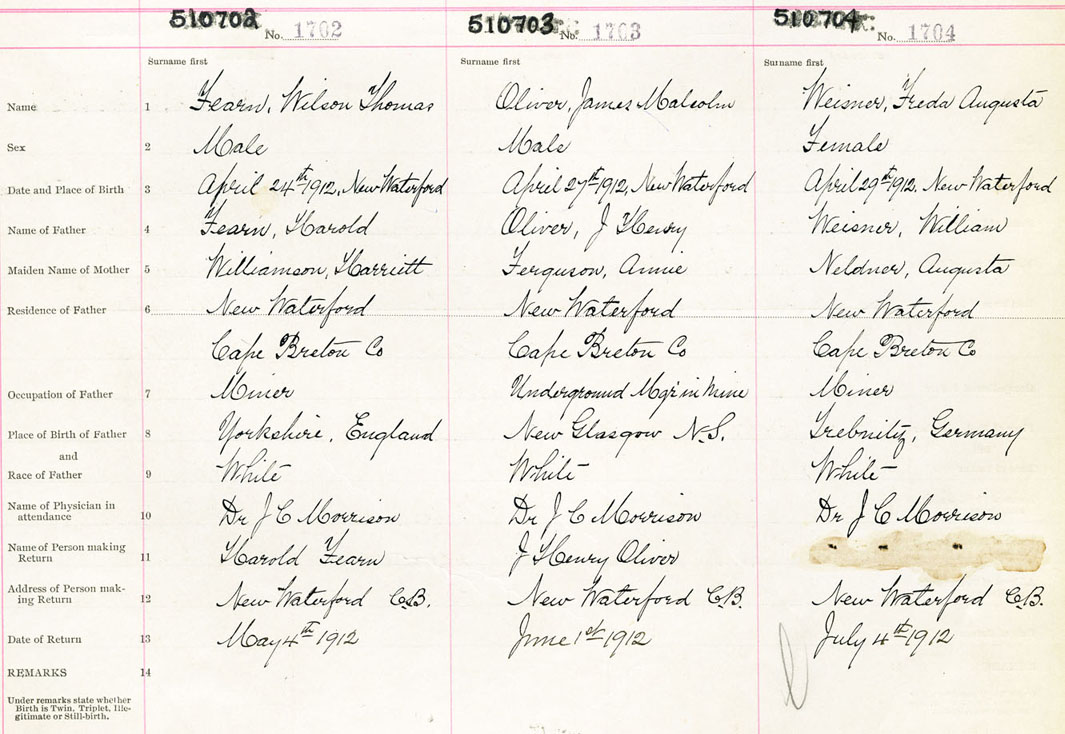 510702 510703 510704
No. 1702 No. 1703 No. 1704
Surname first Surname first Surname first
Name 1 Fearn, Wilson Thomas Oliver, James Malcolm Weisner, Freda Augusta
Sex 2 Male Male Female
Date and Place of Birth 3 April 24th 1912, New Waterford April 27th 1912, New Waterford April 29th 1912. New Waterford
Name of Father 4 Fearn, Harold Oliver, J Henry Weisner, William
Maiden Name of Mother 5 Williamson, Harriett Ferguson, Annie Neldner, Augusta
Residence of Father 6 New Waterford New Waterford New Waterford
Cape Breton Co Cape Breton Co Cape Breton Co
Occupation of Father 7 Miner Underground Mgr in Mine Miner
Place of Birth of Father 8 Yorkshire, England New Glasgow N.S. Trebnitz, Germany
and
Race of Father 9 White White White
Name of Physician in
attendance 10 Dr J C Morrison Dr J C Morrison Dr J C Morrison
Name of Person making
Return 11 Harold Fearn J Henry Oliver
Address of Person mak-
ing Return 12 New Waterford C.B. New Waterford C.B. New Waterford C.B.
Date of Return 13 May 4th 1912 June 1st 1912 July 4th 1912
REMARKS 14
Under remarks state whether
Birth is Twin, Triplet, Ille-
gitimate or Still-birth.